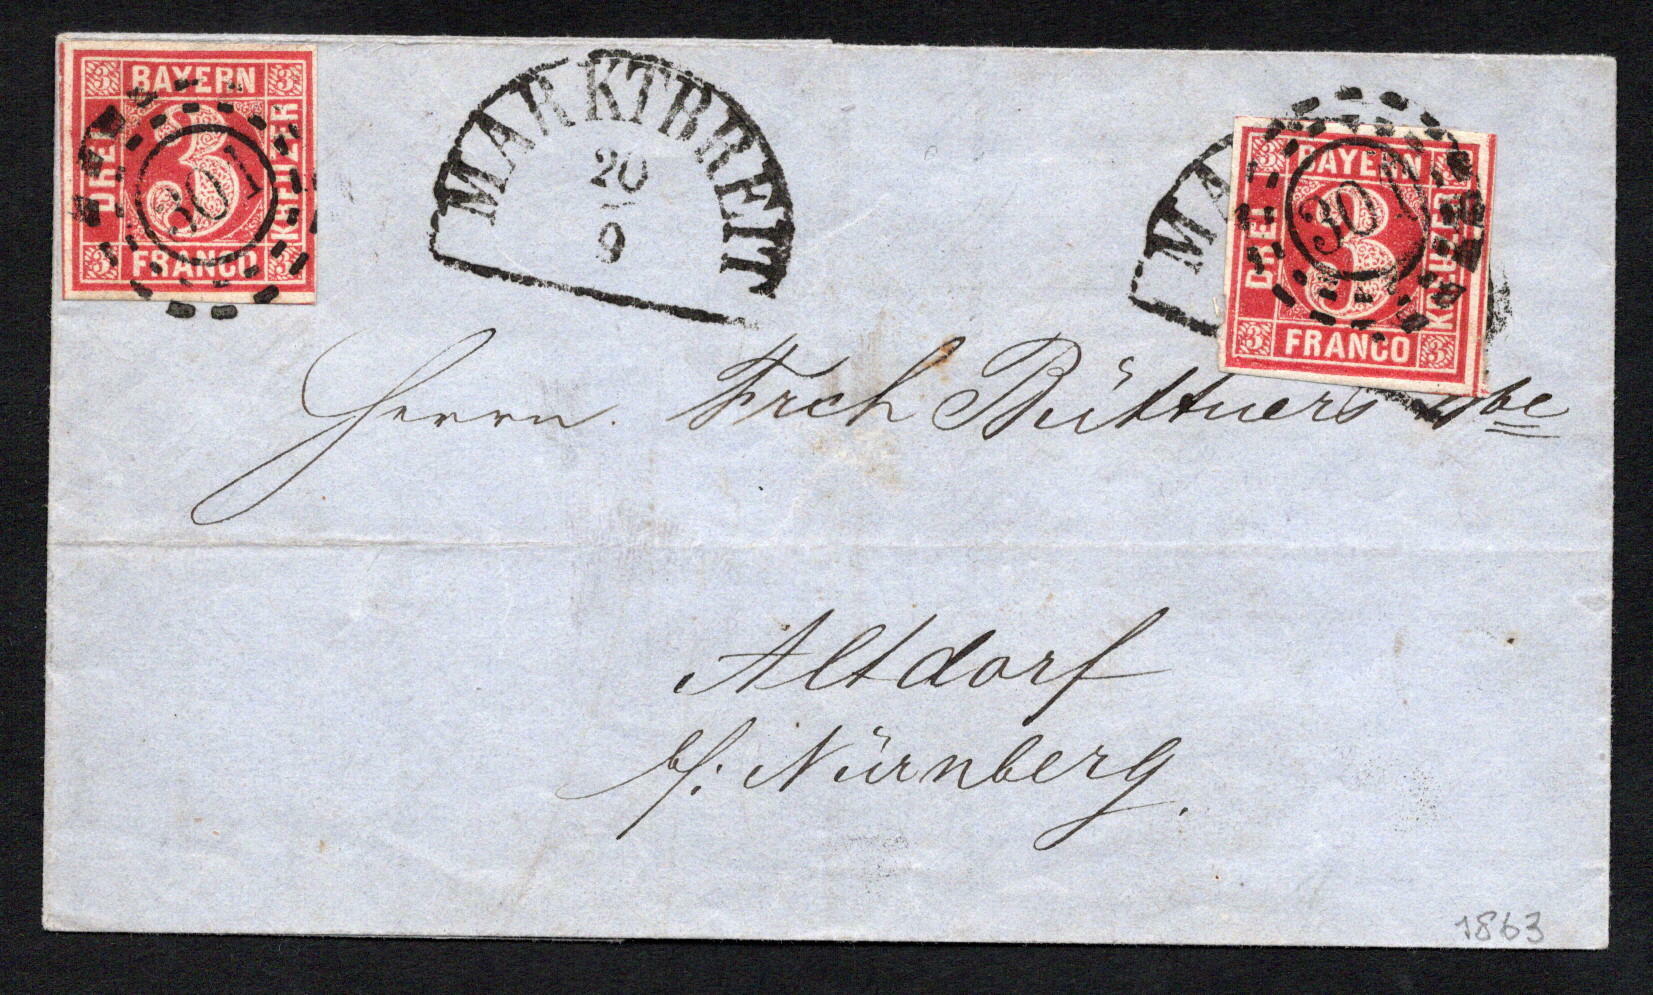 BAYERN
DREI
KREUZER
FRANCO
3 3 3 3
3
301
MARKTBREIT
20
9
MA
BAYERN
DREI
KREUZER
FRANCO
3 3 3 3
3
301
Herrn. Frch Büttners Wbe
Altdorf
b/: Nürnberg.
1863